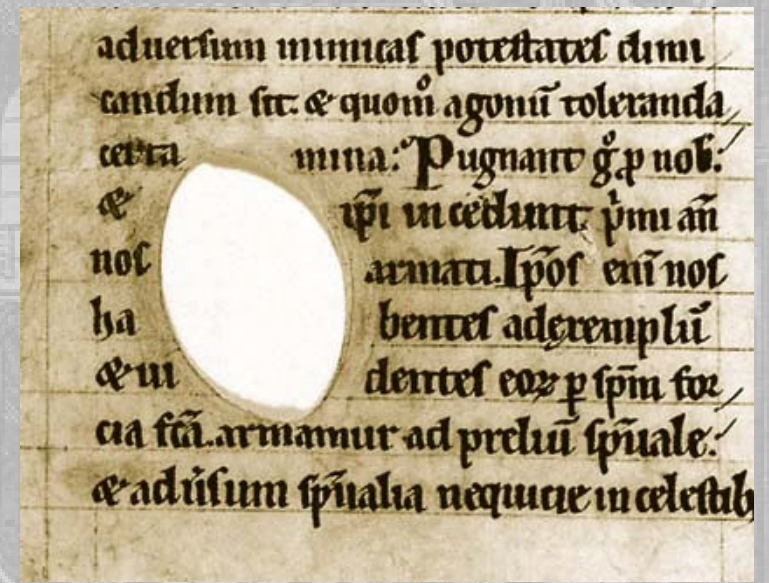 aduersum inimicas potestates dimi
candum sit: & quom̊ agonū toleranda
certa mina: Pugnant g̊ p nob̅:
& ip̄i incedunt p̍mi an̄
nos armati. Ip̄os eni̅ nos
ha bentes ad exemplū
& ui dentes eoꝝ ꝑ sp̄m for
cia fc̄a. armamur ad preliū sp̄uale:
& adu̍sum sp̄ualia nequicie in celestib